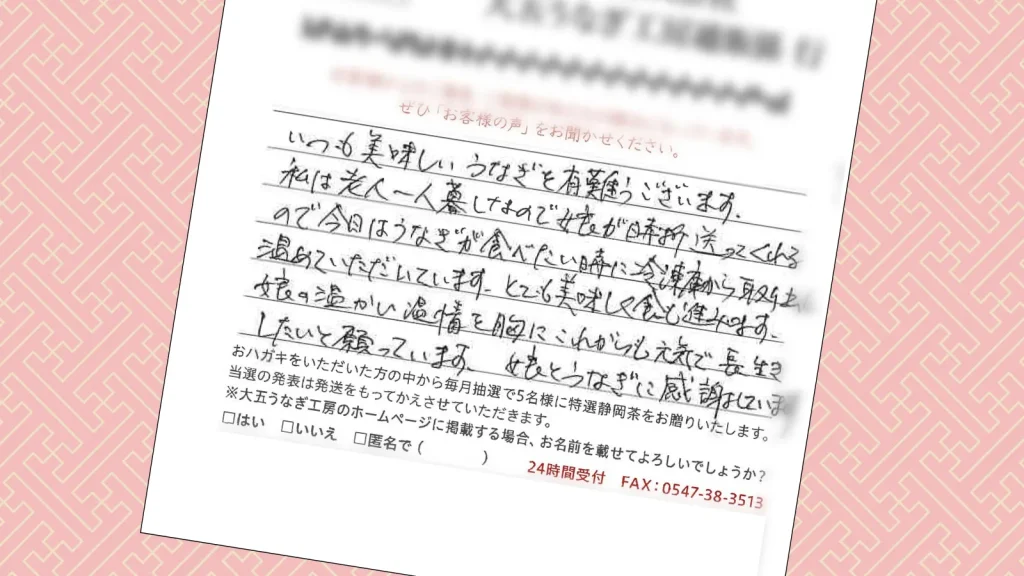 大五うなぎ工房通販係 行
ぜひ「お客様の声」をお聞かせください。
いつも美味しいうなぎを有難うございます。
私は老人一人暮しなので娘が時折送ってくれる
ので今日はうなぎが食べたい時に冷凍庫から取り出
温めていただいています。とても美味しく食も進みます。
娘の温かい温情を胸にこれからも元気で長生き
したいと願っています。 娘とうなぎに感謝していま
おハガキをいただいた方の中から毎月抽選で5名様に特選静岡茶をお贈りいたします。
当選の発表は発送をもってかえさせていただきます。
※大五うなぎ工房のホームページに掲載する場合、お名前を載せてよろしいでしょうか?
□はい □いいえ □匿名で( )
24時間受付 FAX:0547-38-3513